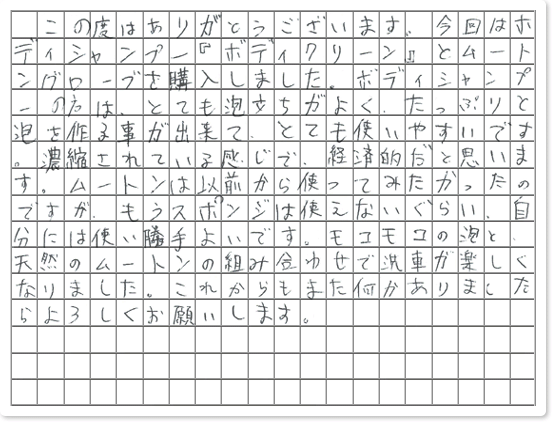 この度はありがとうございます。今回はボ
ディシャンプー『ボディクリーン』とムート
ングローブを購入しました。ボディシャンプ
ーの方は、とても泡立ちがよく、たっぷりと
泡を作る事が出来て、とても使いやすいです
。濃縮されている感じで、経済的だと思いま
す。ムートンは以前から使ってみたかったの
ですが、もうスポンジは使えないぐらい、自
分には使い勝手よいです。モコモコの泡と、
天然のムートンの組み合わせで洗車が楽しく
なりました。これからもまた何かありました
らよろしくお願いします。